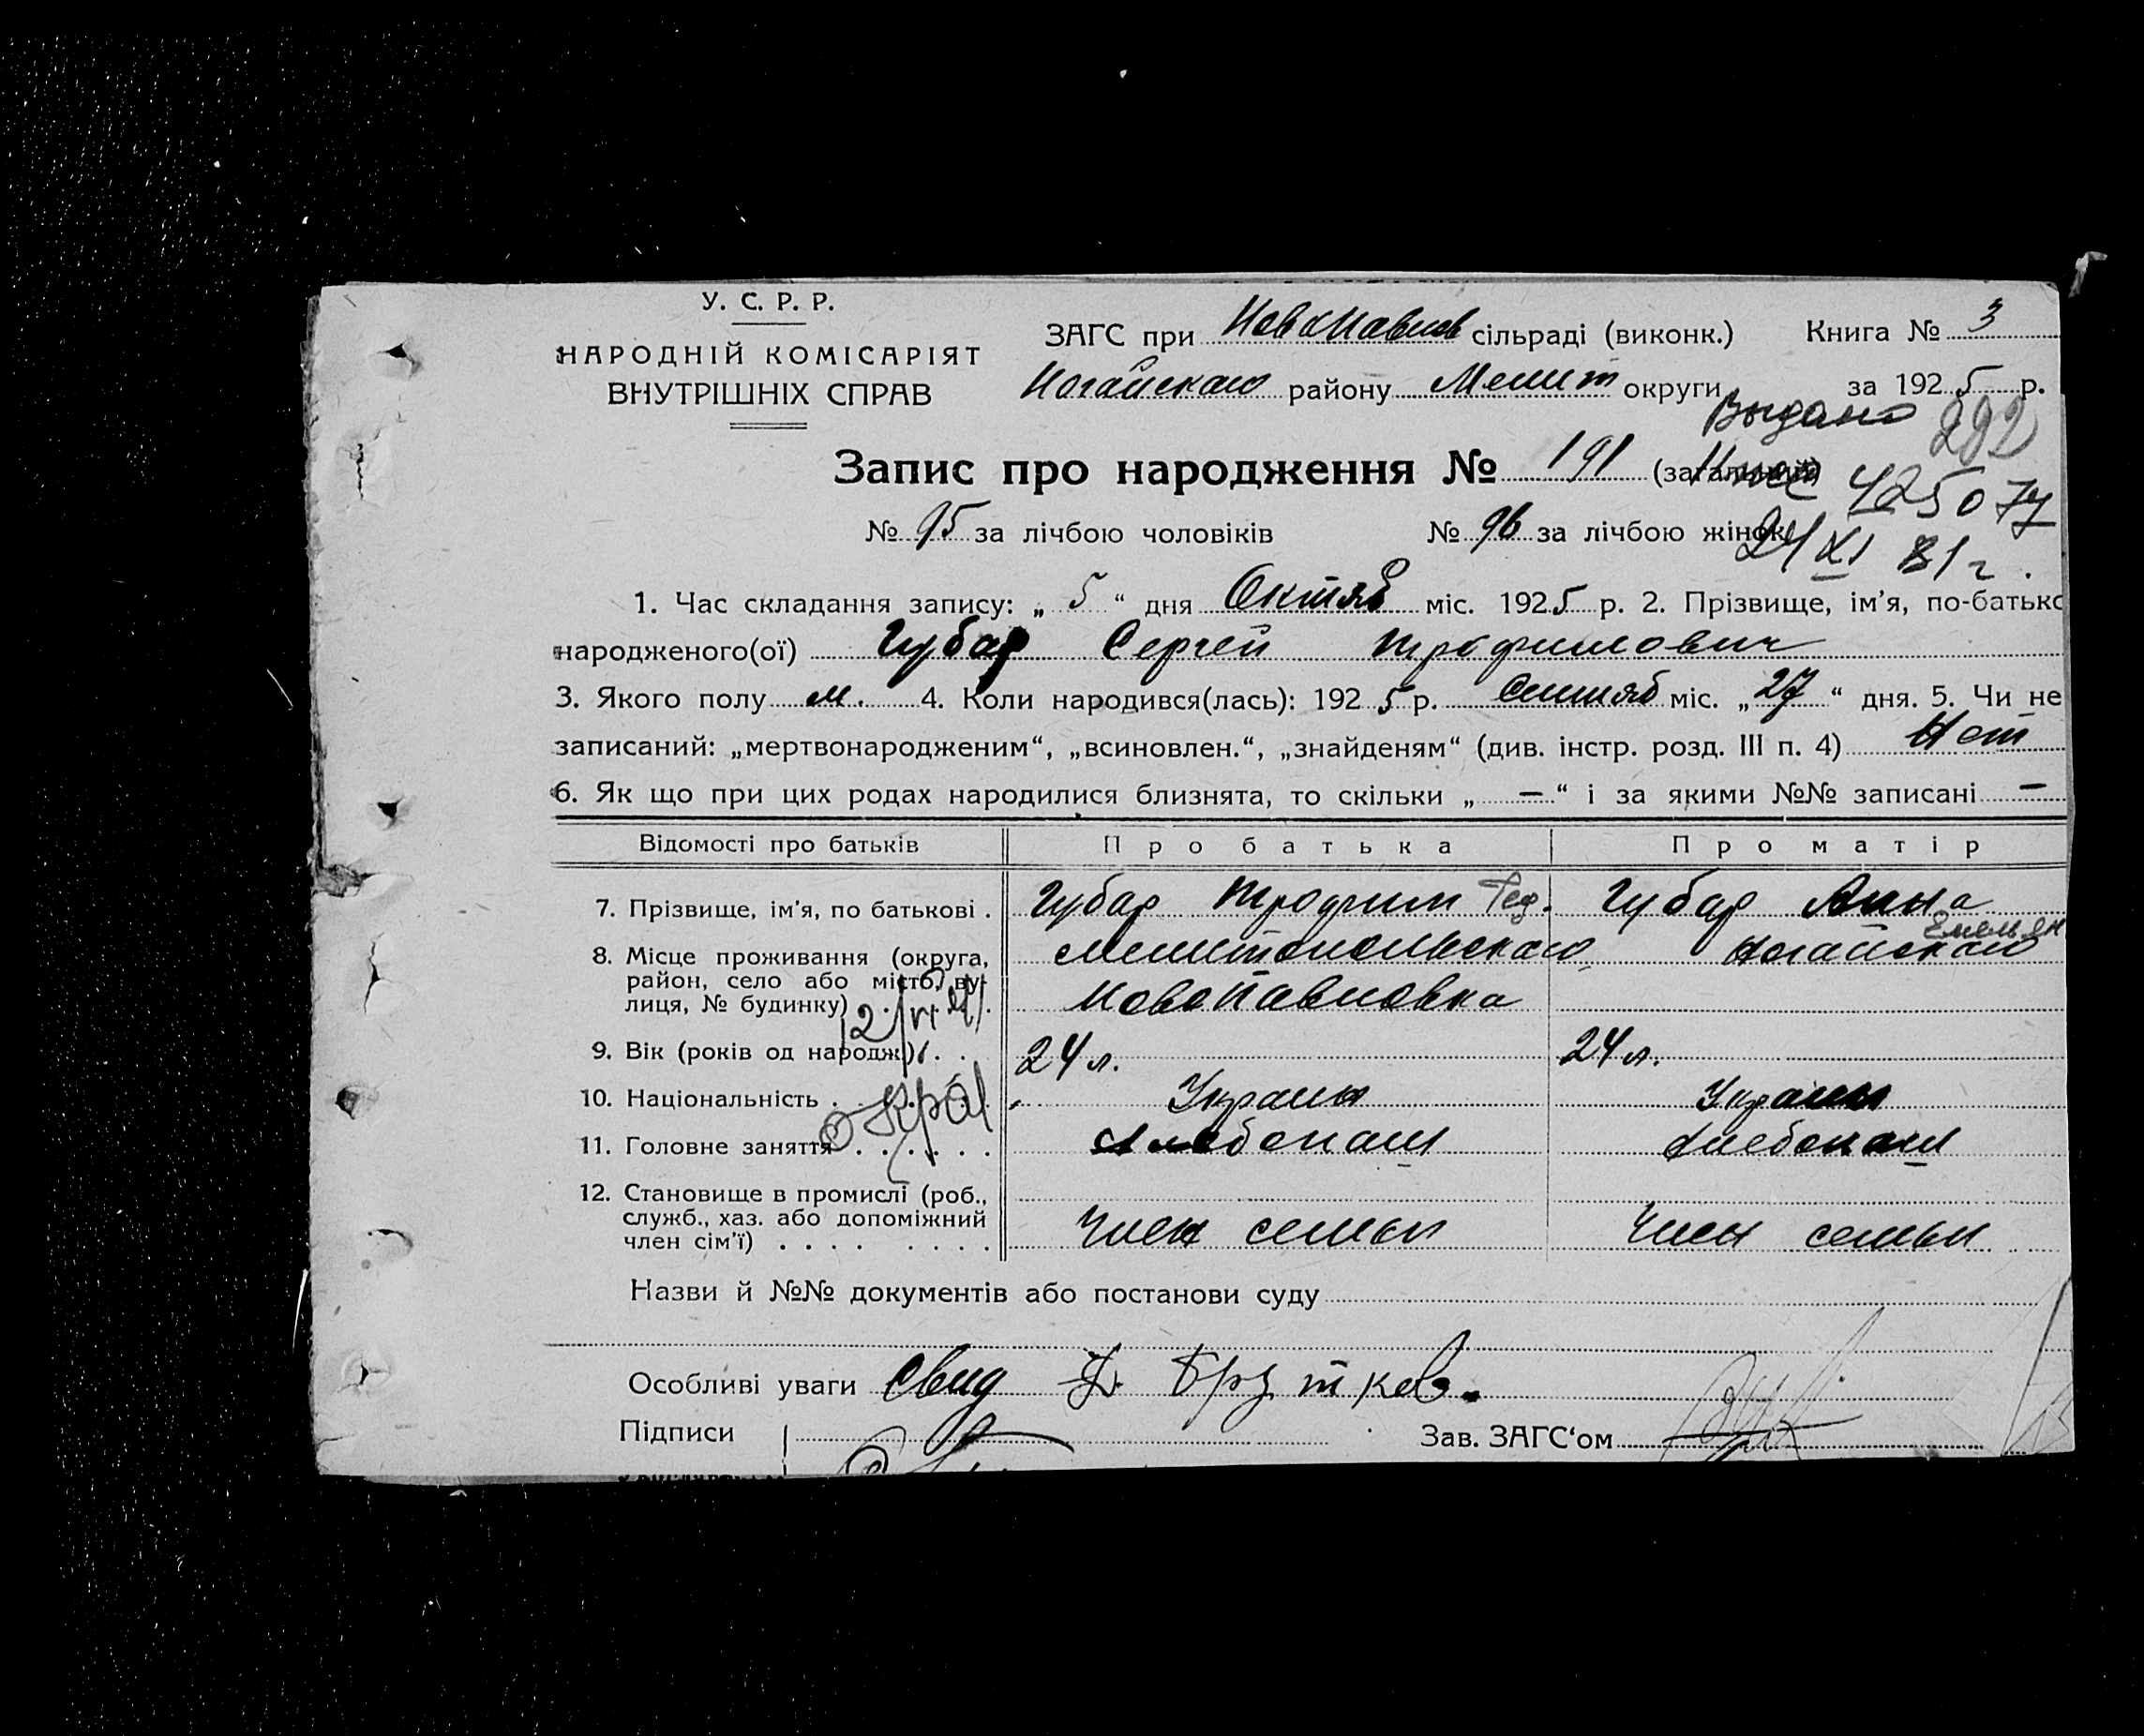 У. С. Р. Р.
НАРОДНІЙ КОМІСАРІЯТ
ВНУТРІШНІХ СПРАВ
ЗАГС при Новопавлов сільраді (виконк.) Книга № 3
Ногайскаго району Мелит округи за 1925 р.
Выдано 292
Запис про народження № 191 (загальний) 425077
№ 95 за лічбою чоловіків № 96 за лічбою жінок
24 XI 81 г.
1. Час складання запису: „ 5 “ дня Октяб міс. 1925 р. 2. Прізвище, ім’я, по-батько
народженого(ої) Губар Сергей Трофимович
3. Якого полу м. 4. Коли народився(лась): 1925 р. Сентяб міс. „ 27 “ дня. 5. Чи не
записаний: „мертвонародженим“, „всиновлен.“, „знайденям“ (див. інстр. розд. III п. 4) Нет
6. Як що при цих родах народилися близнята, то скільки „ — “ і за якими №№ записані —
Відомості про батьків Про батька Про матір
7. Прізвище, ім’я, по батькові . Губар Трофим Фед. Губар Анна Емельян
8. Місце проживання (округа, Мелитопольскаго Ногайскаго
район, село або місто, ву-
лиця, № будинку) Новопавловка
9. Вік (років од народж.) . . 24 л. 24 л.
10. Національність . Украин Украин
11. Головне заняття . . . . . Хлебопаш Хлебопаш
12. Становище в промислі (роб.,
служб., хаз. або допоміжний
член сім’ї) . . . . . . . . Член семьи Член семьи
Назви й №№ документів або постанови суду
Особливі уваги Свид
Підписи Зав. ЗАГС‘ом